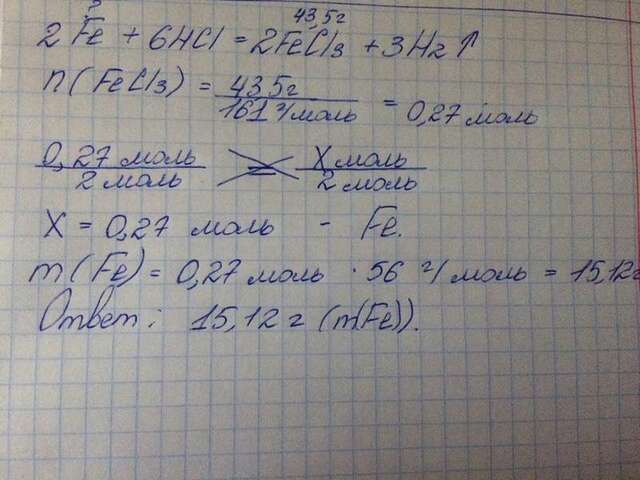 ? 43,5г
2Fe + 6HCl = 2FeCl3 + 3H2 ↑
n(FeCl3) = 43,5г / 161 г/моль = 0,27 моль
0,27 моль / 2 моль = X моль / 2 моль
X = 0,27 моль - Fe.
m(Fe) = 0,27 моль · 56 г/моль = 15,12г
Ответ: 15,12 г (m(Fe)).